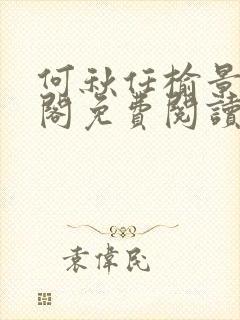 何秋任榆景
閣免費閱讀
袁偉民